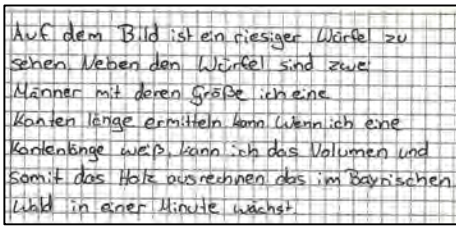 Auf dem Bild ist ein riesiger Würfel zu
sehen. Neben den Würfel sind zwei
Männer mit deren Größe ich eine
Kanten länge ermitteln kann. Wenn ich eine
Kantenlänge weiß, kann ich das Volumen und
somit das Holz ausrechnen das im Bayrischen
Wald in einer Minute wächst.